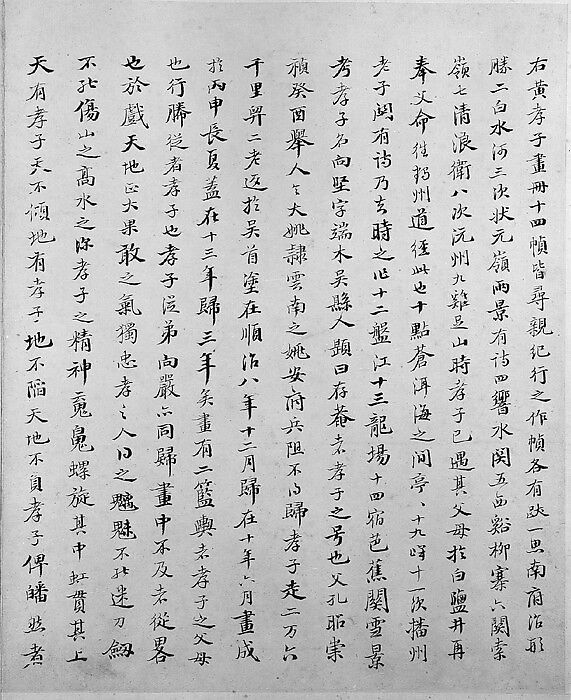 右黃孝子畫冊十四幀皆尋親紀行之作幀各有跋一思南府治形
勝二白水河三次狀元嶺兩景有詩四響水関五函谿柳寨六関索
嶺七清浪衛八次沅州九難足山時孝子已遇其父母於白鹽井再
奉父命往鶴州道經此也十點蒼洱海之間亭、十九峰十一次播州
老子関有詩乃去時之作十二盤江十三龍場十四宿芭蕉關雪景
考孝子名向堅字端木吳縣人題曰存菴者孝子之号也父孔昭崇
禎癸酉舉人令大姚隸雲南之姚安府兵阻不得歸孝子走二万六
千里舁二老返於吳首塗在順治八年十二月歸在十年六月畫成
於丙申長夏蓋在十三年歸三年矣畫有二籃輿者孝子之父母
也行縢從者孝子也孝子從弟向嚴亦同歸畫中不及者從畧
也於戲天地正大果敢之氣獨忠孝之人得之魑魅不能迷刀劔
不能傷山之高水之深孝子之精神䰟鬼螺旋其中虹貫其上
天有孝子天不傾地有孝子地不陷天地不負孝子俾皤然者